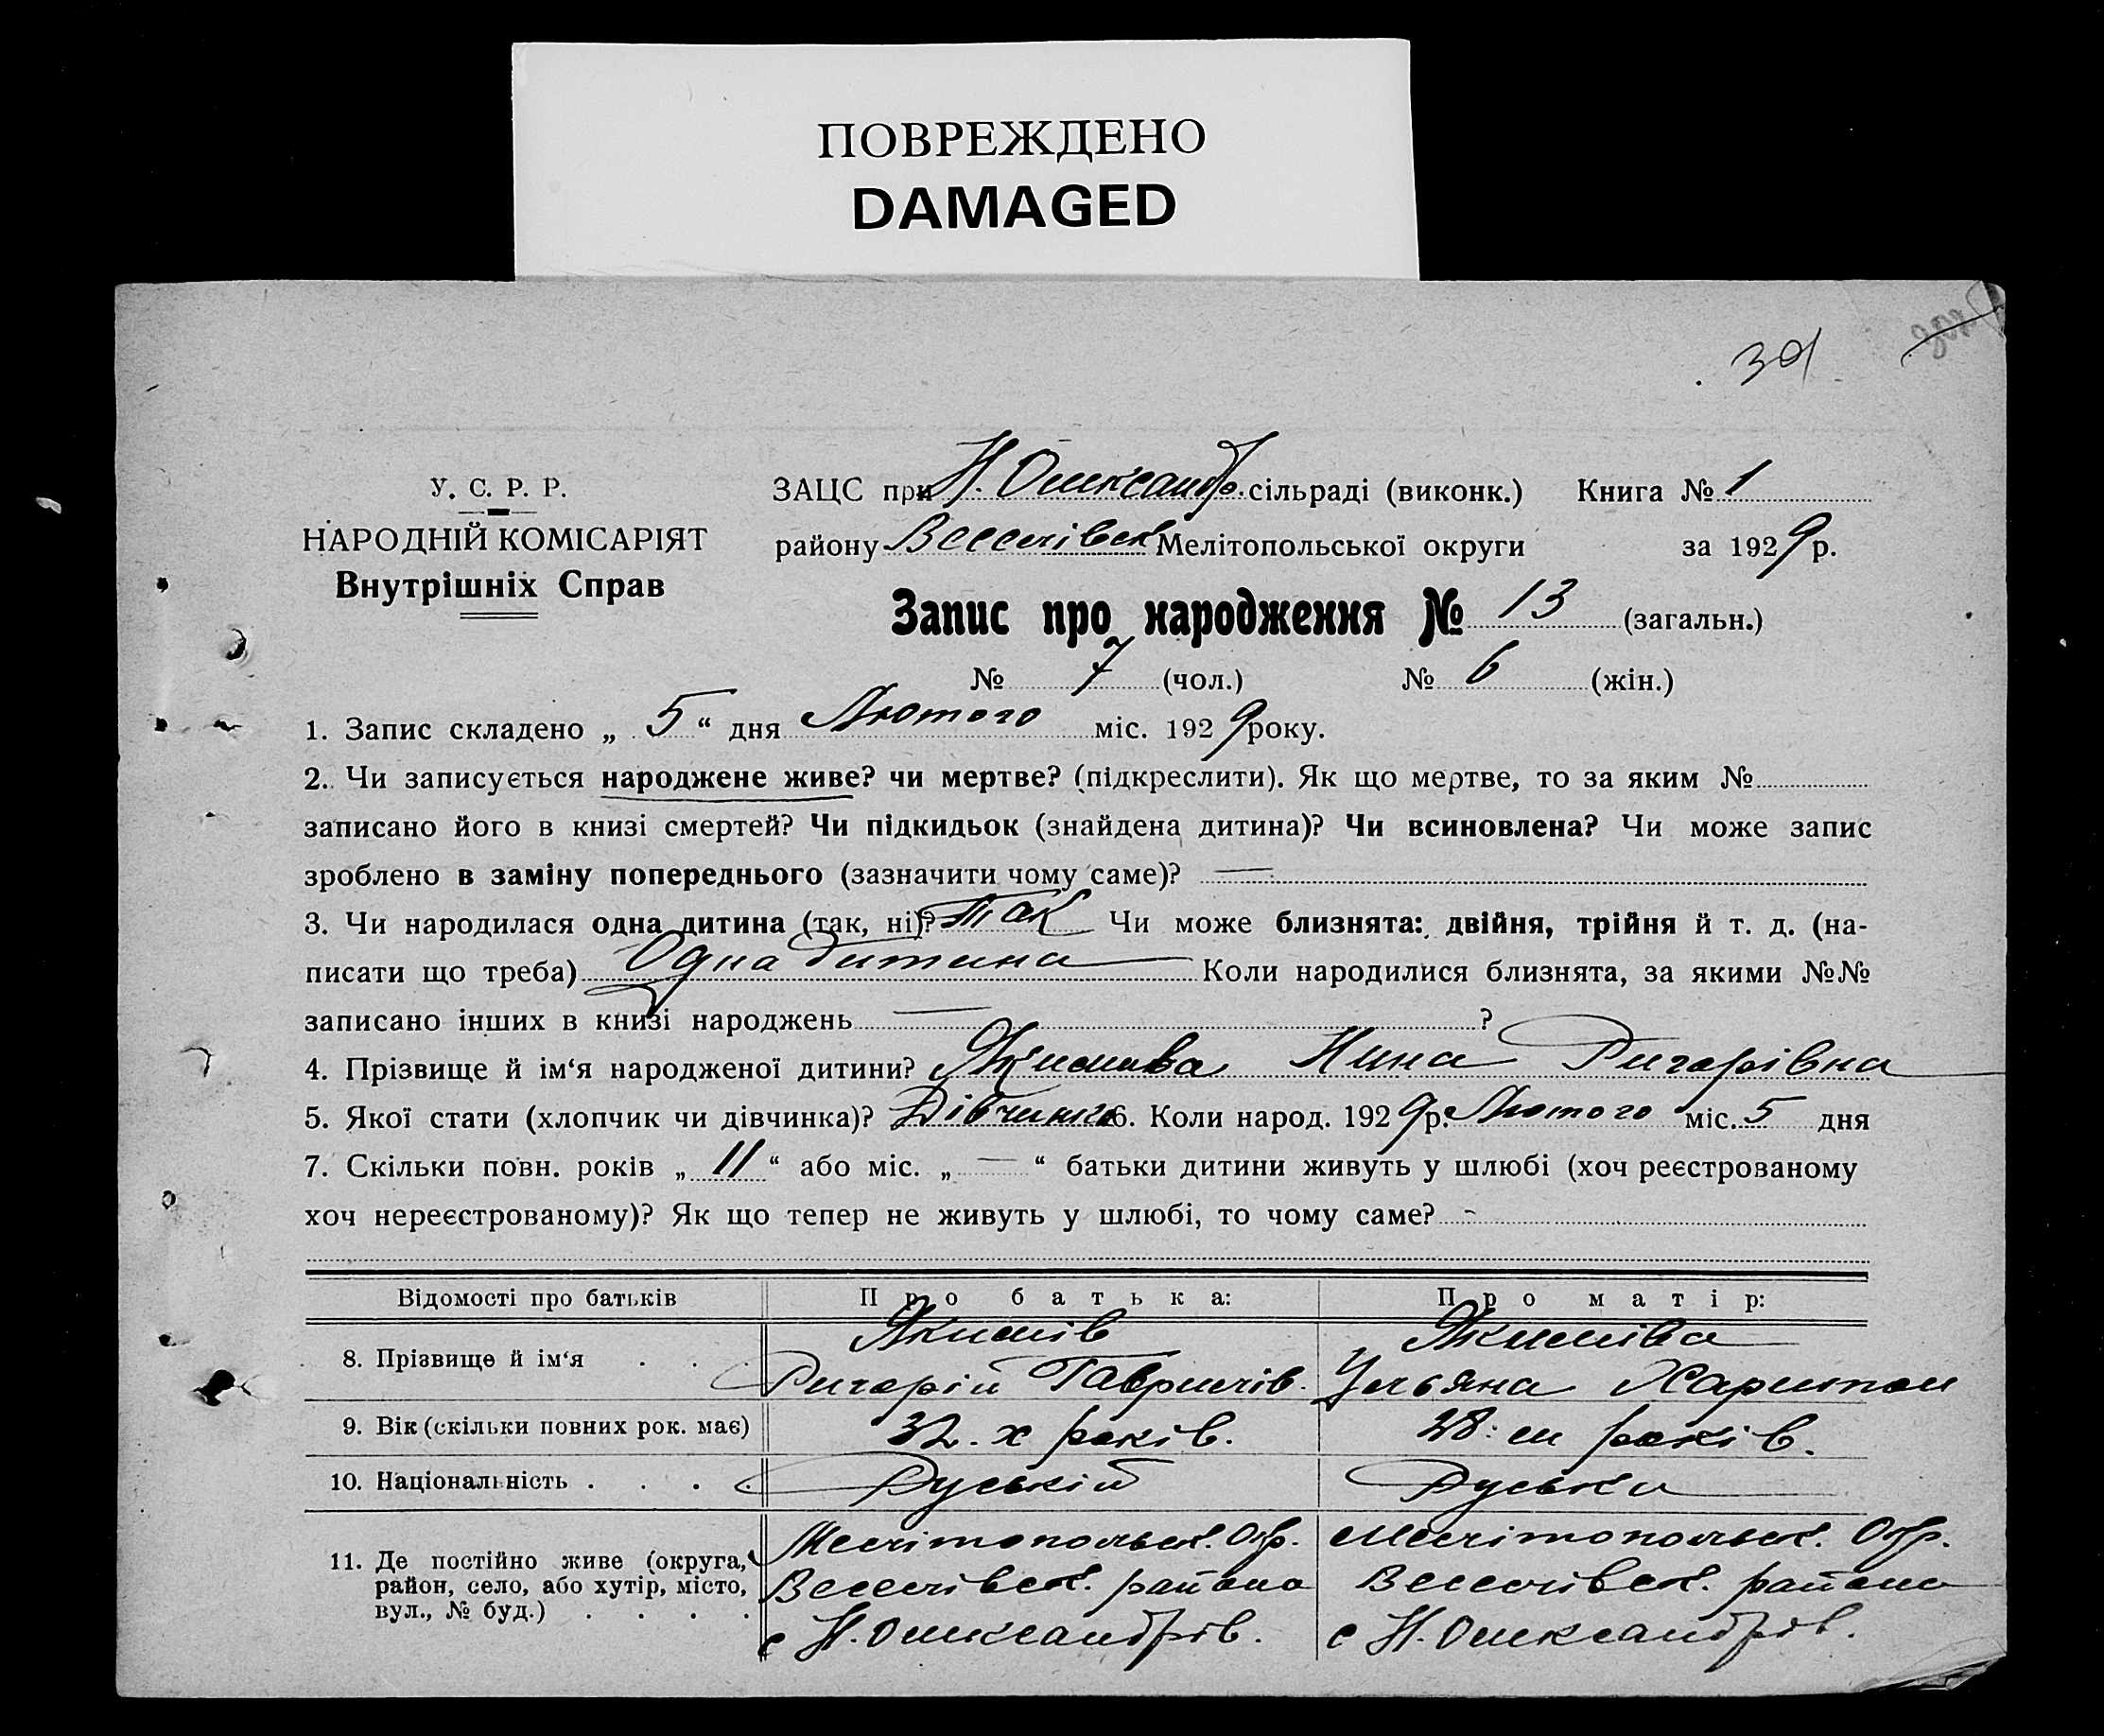 ПОВРЕЖДЕНО
DAMAGED
У. С. Р. Р.
НАРОДНІЙ КОМІСАРІЯТ
Внутрішніх Справ
ЗАЦС при Н. Олександр. сільраді (виконк.) Книга № 1
району Веселівськ Мелітопольської округи за 1929 р.
Запис про народження № 13 (загальн.)
№ 7 (чол.) № 6 (жін.)
1. Запис складено „ 5 “ дня Лютого міс. 1929 року.
2. Чи записується народжене живе? чи мертве? (підкреслити). Як що мертве, то за яким №
записано його в книзі смертей? Чи підкидьок (знайдена дитина)? Чи всиновлена? Чи може запис
зроблено в заміну попереднього (зазначити чому саме)? —
3. Чи народилася одна дитина (так, ні)? Так Чи може близнята: двійня, трійня й т. д. (на-
писати що треба) Одна дитина Коли народилися близнята, за якими №№
записано інших в книзі народжень — ?
4. Прізвище й ім‘я народженої дитини? Якимива Нина Ригорівна
5. Якої стати (хлопчик чи дівчинка)? Дівчинка 6. Коли народ. 1929 р. Лютого міс. 5 дня
7. Скільки повн. років „ 11 “ або міс. „ — “ батьки дитини живуть у шлюбі (хоч реєстрованому
хоч нереєстрованому)? Як що тепер не живуть у шлюбі, то чому саме? -
Відомості про батьків Про батька: Про матір:
8. Прізвище й ім‘я . . . Якимів Ригорій Гаврилів. Якиміва Ульяна Харитон
9. Вік (скільки повних рок. має) 32-х років. 28-ми років.
10. Національність . . . . Руський Руська
11. Де постійно живе (округа, Мелітопольськ. Окр. Мелітопольськ. Окр.
район, село, або хутір, місто, Веселівськ. района Веселівськ. района
вул., № буд.) . . . . с Н. Олександрів. с Н. Олександрів.